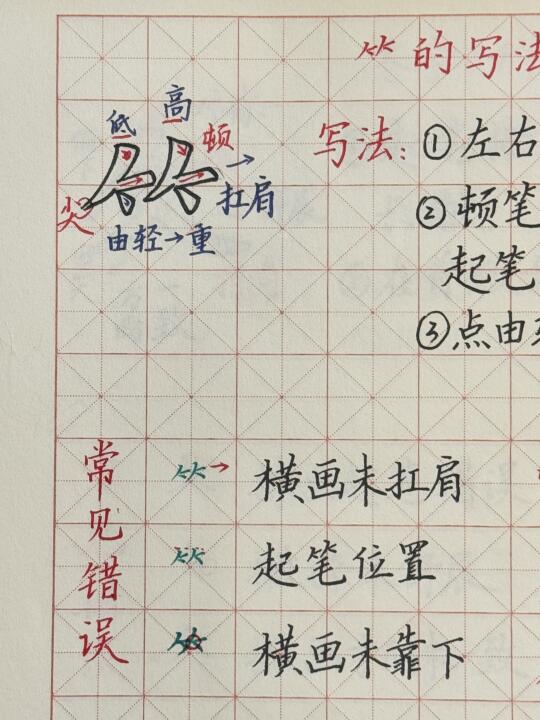 ⺮的写法
高
低
顿
尖
扛肩
由轻→重
写法：①左右
②顿笔
起笔
③点由
常见错误
⺮→ 横画未扛肩
⺮ 起笔位置
⺮ 横画未靠下